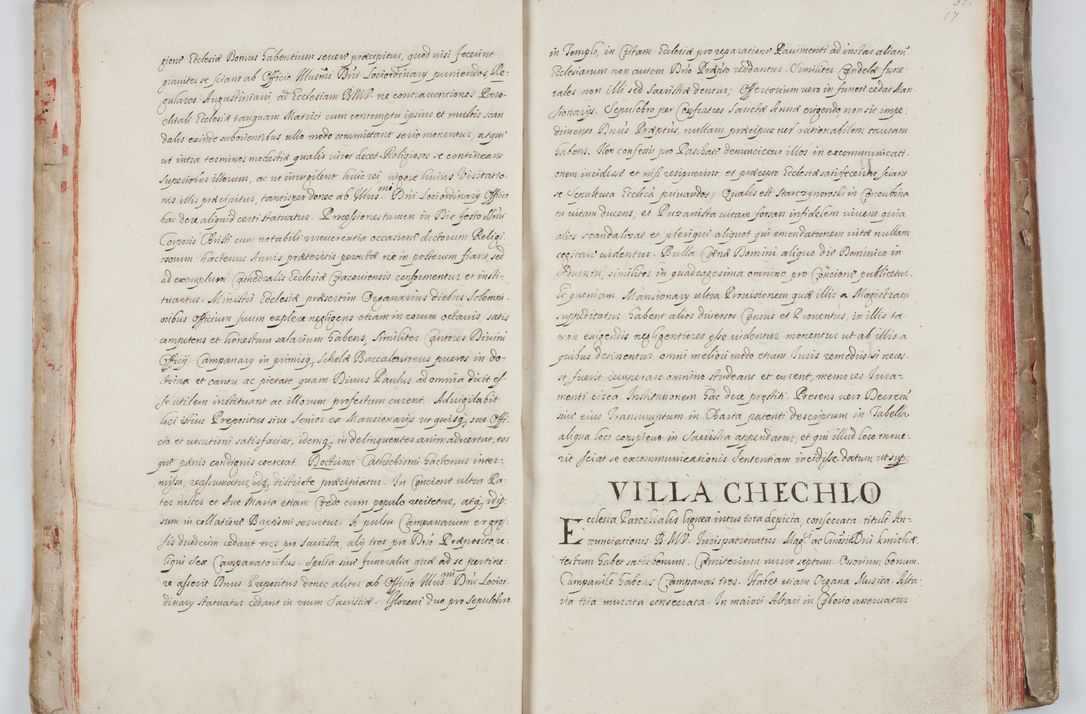 gione Ecclesiæ Domus habentium severe præcipitur, quod nisi fecerint
graviter se sciant ab Officio Illusmi Dni Lociordinary puniendos, Re-
gulares Augustiniani ad Ecclesiam B.M.V. ne contraventiones Paro-
chiali Ecclesiæ tanquam Matrici cum contemptu ipsius et multis scan
dalis exinde suborientibus ullo modo committant serio monentur, atque
ut intra terminos modestiæ qualis viros decet Religiosos se contineant
Superiores illorum, ac ut invigilent huic rei, vigore huius Visitatio-
nis illis præcipitur, tantisper donec ab Illusmi Dni Lociordinary Officio
hac de re aliquid certi statuatur. Processiones tamen in Die festo Sctmi
Corporis Christi cum notabili irreverentia occasione dictorum Religi-
osorum hactenus Annis præteritis peractæ ne in posterum fiant sed
ad exemplum Cathedralis Ecclesiæ Cracoviensis conformentur et insti-
tuantur. Ministri Ecclesiæ præsertim Organarius diebus Solemni-
oribus officium suum explere negligens etiam in eorum octavis satis
competens et honestum salarium habens, Similiter Cantores Divini
Officij Campanary in primisq, Scholæ Baccalaureus pueros in do-
ctrina et cantu ac pietate quam Divus Paulus ad omnia dicit es-
se utilem instituant ac illorum profectum curent. Advigilabit
loci istius Prepositus sive Senior ex Mansionarijs ut quisq, suo Offi-
cio et vocationi satisfaciat, idemq, in delinquentes animadvertat, eos
que pænis condignis coerceat. Doctrina Cathechismi hactenus inter-
missa, reassumatur idq, districte præcipiatur. In Concione ultra Pa-
ter noster et Ave Maria etiam Credo cum populo recitetur, atq, idip-
sum in collatione Baptismi servetur. A pulsu Campanarum ex gros-
sis duodecim cedant tres pro Sacrista, alij tres pro Dno Præposito re-
liqui sex Campanatoribus. Spolia sive funeralia quæ ad se pertine-
re asserit Dnus Prepositus donec aliter ab Officio Illusmi Dni Locior-
dinary statuatur cedant in usum Sacristiæ. Floreni duo pro sepulchro
in Templo, in Cistam Ecclesiæ pro reparatione Pavimenti ad instar aliarum
Ecclesiarum non autem Dno Præposito reddantur. Similiter Candelæ fune-
rales non illi sed Sacristiæ dentur, Offertorium vero in funere cedat Man
sionarijs. Sepulchro per Confratres Sanctæ Annæ erigendo non sit impe-
dimento Dnus Præpositus, nullam præcipue uer rationabilem causam
habens. Non confessi pro Paschate denuncientur illos in excommunicati-
onem incidisse et nisi resipuerint, et præcepto Ecclesiæ satisfecerint sciant
se Sepultura Ecclica privandos, Qualis est Starczynowski in Concubina
tu vitam ducens, et Puzanista vitam forsan infidelem vivens quia
alios scandalizat et plerique aliquot qui emendationem vitæ nullam
cogitare videntur. Bulla Cænæ Domini aliquo die Dominico in
Adventu, similiter in quadragesima omnino pro Concione publicetur.
Et quoniam Mansionary ultra Provisionem quæ illis a Magistratu
suppeditatur habent alios diversos Census et Proventus, in illis ta
men exigendis negligentiores esse videntur monentur ut ab illis a
quibus detinentur omni meliori modo etiam Iuris remedijs si neces-
se fuerit recuperare omnino studeant et curent, memores Iura-
menti circa Institutionem hac de re præstiti. Presens vero Decretu
sive eius Transumptum in Charta patenti descriptum in Tabella
aliqua loco conspicuo in Sacristia appendatur, et qui illud loco move-
rit sciat se excommunicationis sententiam incidisse. datum ut sup:
VILLA CHECHLO
Ecclesia Parochialis lignea intus tota depicta, consecrata. tituli An-
nunciationis B.M.V. Iurispatronatus Magci ac Gnosi Dni kmickiæ
tectum habet satis bonum. Cæmiterium muro septum. Ossorium bonum.
Campanile habens Campanas tres. Habet etiam Organa Musica. Alta
ria tria murata consecrata. In maiori Altari in Ciborio asservatur